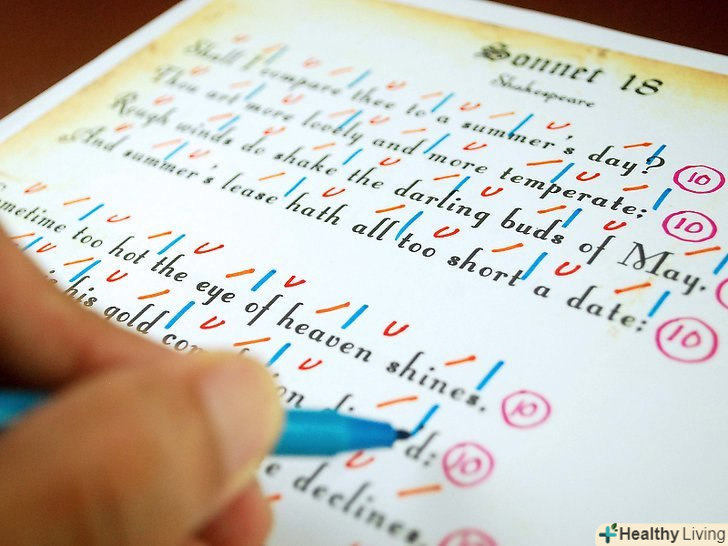 Sonnet 18
Shakespeare
Shall I compare thee to a summer's day? 10
Thou art more lovely and more temperate: 10
Rough winds do shake the darling buds of May.
And summer's lease hath all too short a date: 10
metime too hot the eye of heaven shines. 10
is his gold d: 10
declines.
Healthy Living